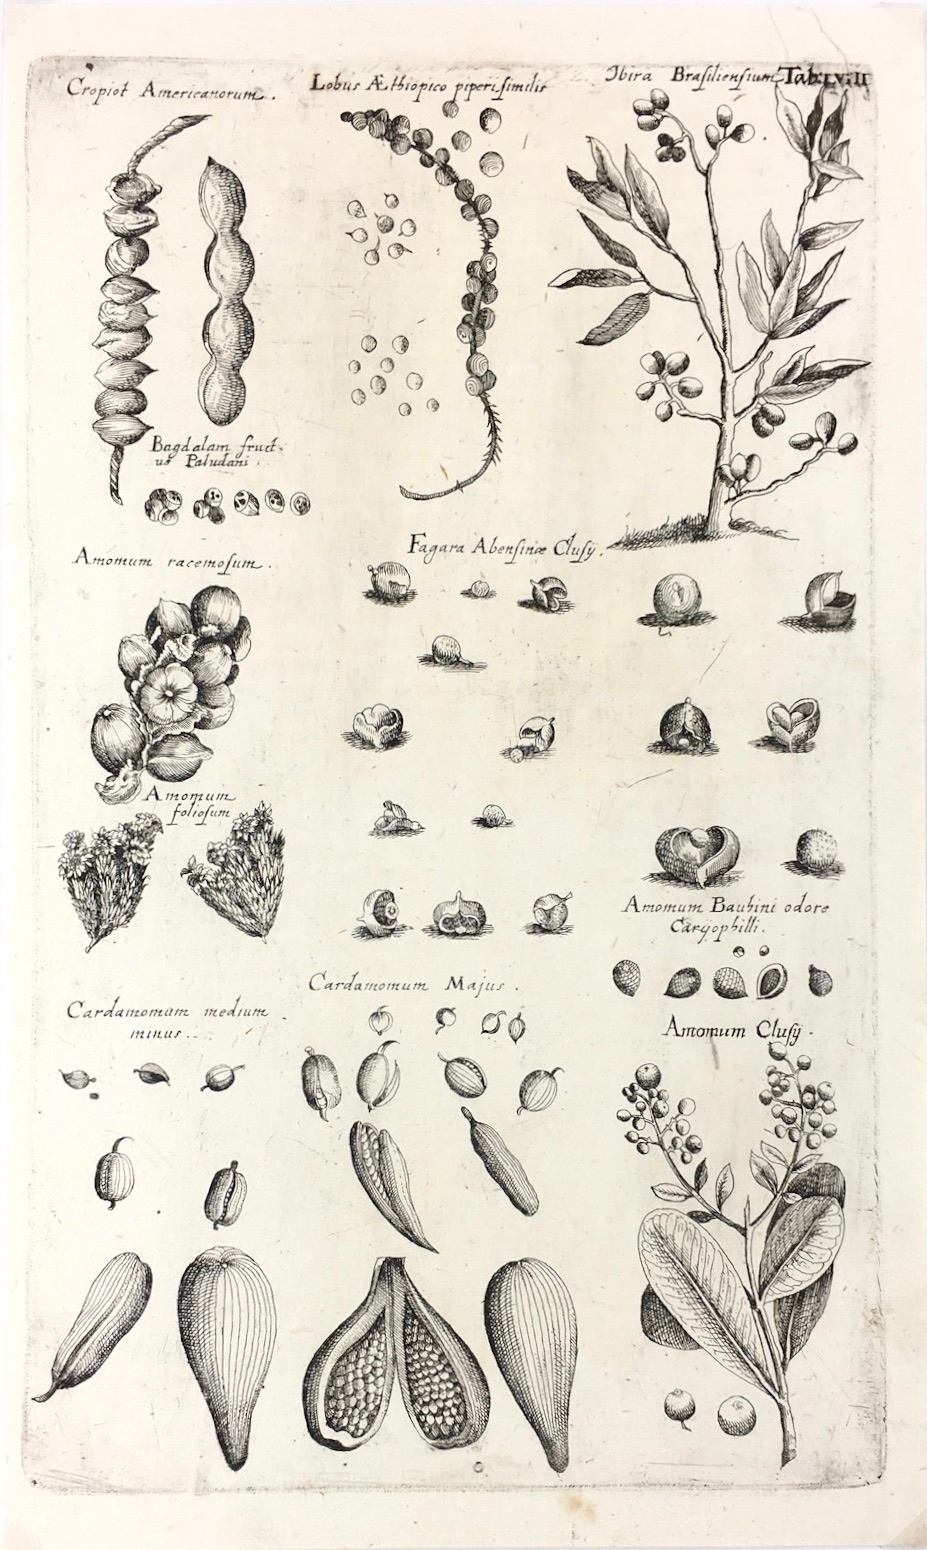 Cropiot Americanorum.
Lobus Æthiopico piperi ſimilis
Ibira Braſilienſium
Tab: LVIII
Bagdalam fruct⸗
us Paludani.
Amomum racemoſum.
Fagara Abenſinæ Cluſÿ.
Amomum
folioſum
Amomum Bauhini odore
Carÿophilli.
Cardamomum Majus.
Cardamomum medium
minus..
Amomum Cluſÿ.